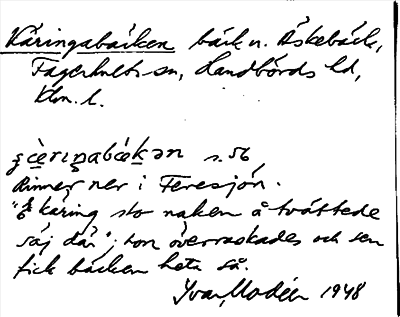 Käringabäcken bäck n. Äskebäck,
Fagerhults sn, Handbörds hd,
Klm. l.
ȿèriŋabækən s. 56
Rinner ner i Feresjön.
"E käring sto naken å tvättede
säj där"; hon överraskades och sen
fick bäcken heta så.
Yvar Modéer 1948